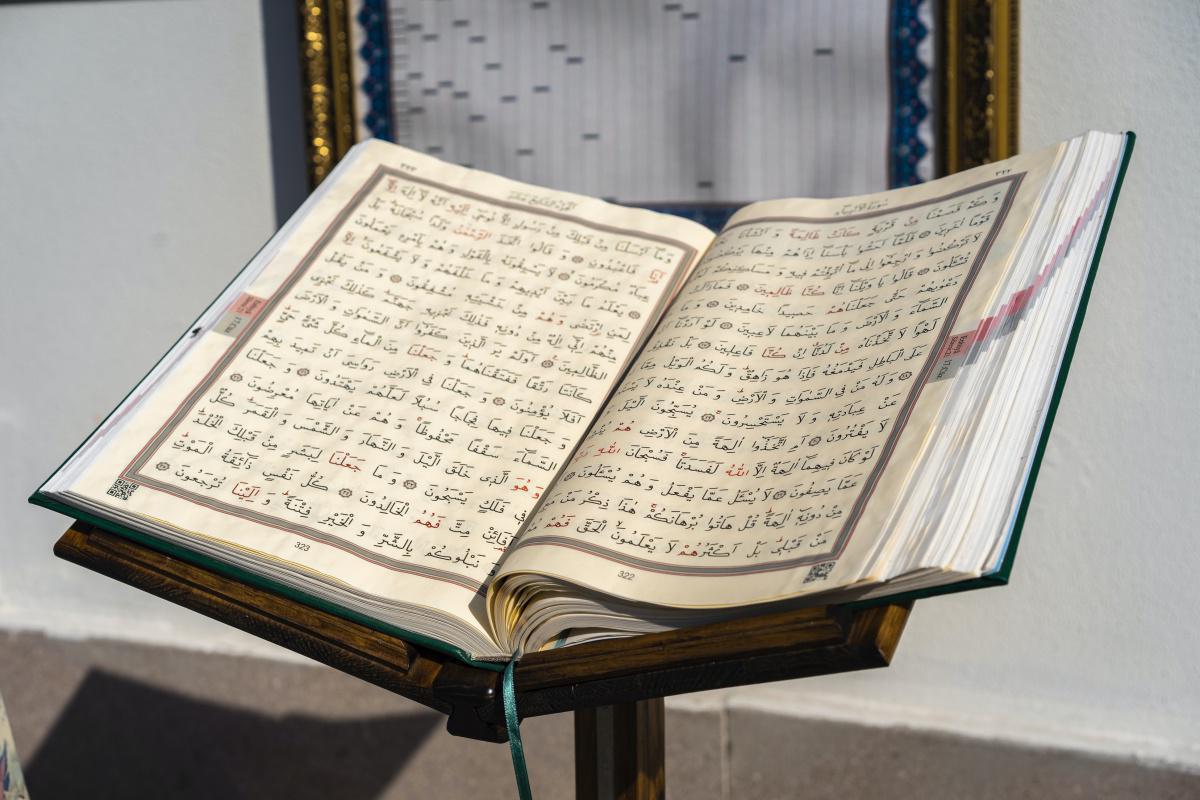 ٣٢٢
سُورَةُ الْاَنْبِيَاءِ
وَكَمْ قَصَمْنَا مِنْ قَرْيَةٍ كَانَتْ ظَالِمَةً وَاَنْشَأْنَا
قَوْمًا اٰخَرِينَ ۝ فَلَمَّٓا اَحَسُّوا بَأْسَنَٓا اِذَا هُمْ مِنْهَا يَرْكُضُونَ
لَا تَرْكُضُوا وَارْجِعُٓوا اِلٰى مَٓا اُتْرِفْتُمْ فِيهِ وَمَسَاكِنِكُمْ
تُسْـَٔلُونَ ۝ قَالُوا يَا وَيْلَنَٓا اِنَّا كُنَّا ظَالِمِينَ ۝ فَمَا زَالَتْ
دَعْوٰيهُمْ حَتّٰى جَعَلْنَاهُمْ حَصِيدًا خَامِدِينَ ۝ وَمَا
السَّمَٓاءَ وَالْاَرْضَ وَمَا بَيْنَهُمَا لَاعِبِينَ ۝ لَوْ اَرَدْنَٓا
لَهْوًا لَاتَّخَذْنَاهُ مِنْ لَدُنَّٓا اِنْ كُنَّا فَاعِلِينَ ۝ بَلْ نَقْذِفُ
عَلَى الْبَاطِلِ فَيَدْمَغُهُ فَاِذَا هُوَ زَاهِقٌ وَلَكُمُ الْوَيْلُ مِمَّا
۝ وَلَهُ مَنْ فِي السَّمٰوَاتِ وَالْاَرْضِ وَمَنْ عِنْدَهُ لَا
عَنْ عِبَادَتِهِ وَلَا يَسْتَحْسِرُونَ ۝ يُسَبِّحُونَ الَّيْلَ
لَا يَفْتُرُونَ ۝ اَمِ اتَّخَذُٓوا اٰلِهَةً مِنَ الْاَرْضِ هُمْ
لَوْ كَانَ فِيهِمَٓا اٰلِهَةٌ اِلَّا اللّٰهُ لَفَسَدَتَا فَسُبْحَانَ اللّٰهِ
عَمَّا يَصِفُونَ ۝ لَا يُسْـَٔلُ عَمَّا يَفْعَلُ وَهُمْ يُسْـَٔلُونَ ۝
مِنْ دُونِهِٓ اٰلِهَةً قُلْ هَاتُوا بُرْهَانَكُمْ هٰذَا ذِكْرُ مَنْ
مَنْ قَبْلِي بَلْ اَكْثَرُهُمْ لَا يَعْلَمُونَ الْحَقَّ فَهُمْ
322
٣٢٣
اَلْجُزْءُ السَّابِعُ عَشَرَ
وَمَٓا اَرْسَلْنَا مِنْ قَبْلِكَ مِنْ رَسُولٍ اِلَّا نُوحِٓي اِلَيْهِ اَنَّهُ لَٓا اِلٰهَ اِلَّٓا
اَنَا۬ فَاعْبُدُونِ ۝ وَقَالُوا اتَّخَذَ الرَّحْمٰنُ وَلَدًا سُبْحَانَهُ بَلْ
عِبَادٌ مُكْرَمُونَ ۝ لَا يَسْبِقُونَهُ بِالْقَوْلِ وَهُمْ بِاَمْرِهِ يَعْمَلُونَ
۝ يَعْلَمُ مَا بَيْنَ اَيْدِيهِمْ وَمَا خَلْفَهُمْ وَلَا يَشْفَعُونَ اِلَّا
لِمَنِ ارْتَضٰى وَهُمْ مِنْ خَشْيَتِهِ مُشْفِقُونَ ۝ وَمَنْ يَقُلْ
مِنْهُمْ اِنِّٓي اِلٰهٌ مِنْ دُونِهِ فَذٰلِكَ نَجْزِيهِ جَهَنَّمَ كَذٰلِكَ نَجْزِي
الظَّالِمِينَ ۝ اَوَلَمْ يَرَ الَّذِينَ كَفَرُٓوا اَنَّ السَّمٰوَاتِ وَالْاَرْضَ
كَانَتَا رَتْقًا فَفَتَقْنَاهُمَا وَجَعَلْنَا مِنَ الْمَٓاءِ كُلَّ شَيْءٍ حَيٍّ
اَفَلَا يُؤْمِنُونَ ۝ وَجَعَلْنَا فِي الْاَرْضِ رَوَاسِيَ اَنْ تَمِيدَ بِهِمْ
وَجَعَلْنَا فِيهَا فِجَاجًا سُبُلًا لَعَلَّهُمْ يَهْتَدُونَ ۝ وَجَعَلْنَا
السَّمَٓاءَ سَقْفًا مَحْفُوظًا وَهُمْ عَنْ اٰيَاتِهَا مُعْرِضُونَ ۝
وَهُوَ الَّذِي خَلَقَ الَّيْلَ وَالنَّهَارَ وَالشَّمْسَ وَالْقَمَرَ كُلٌّ
فِي فَلَكٍ يَسْبَحُونَ ۝ وَمَا جَعَلْنَا لِبَشَرٍ مِنْ قَبْلِكَ الْخُلْدَ
اَفَا۬ئِنْ مِتَّ فَهُمُ الْخَالِدُونَ ۝ كُلُّ نَفْسٍ ذَٓائِقَةُ الْمَوْتِ
وَنَبْلُوكُمْ بِالشَّرِّ وَالْخَيْرِ فِتْنَةً وَاِلَيْنَا تُرْجَعُونَ ۝
323